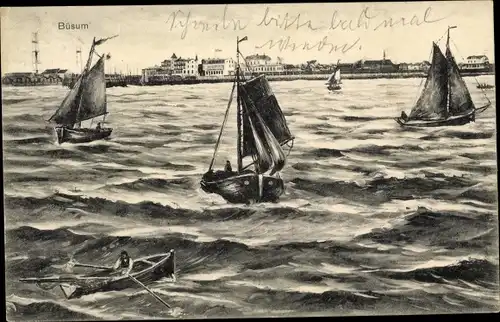 Büsum
Schreibe bitte bald mal
wieder.